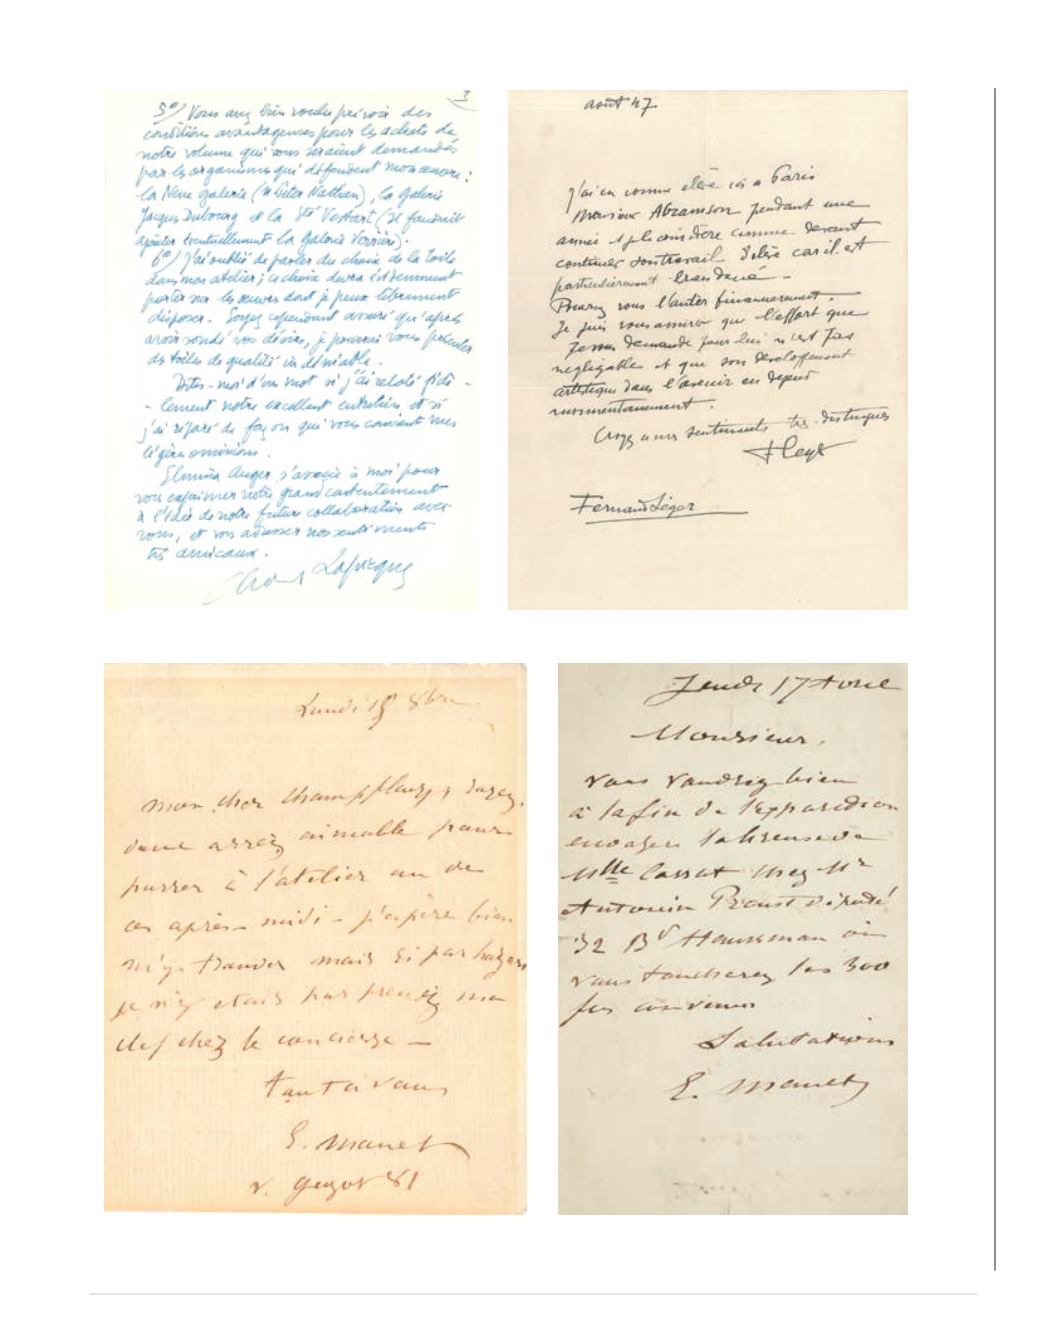 3
5°/ Vous avez bien voulu prévoir des
conditions avantageuses pour les achats de
notre volume qui vous seraient demandés
par les organismes qui défendent mon œuvre :
la Neue Galerie (M. Peter Nathan), la Galerie
Jacques Dubourg et la Sté Vestart (Il faudrait
ajouter éventuellement la Galerie Verrière).
6°/ J'ai oublié de parler du choix de la toile
dans mon atelier ; ce choix devra évidemment
porter sur les œuvres dont je peux librement
disposer. Soyez cependant assuré qu'après
avoir sondé vos désirs, je pourrai vous présenter
des toiles de qualité indéniable.
Dites-moi d'un mot si j'ai relaté fidè-
-lement notre excellent entretien et si
j'ai réparé de façon qui vous convient mes
légères omissions.
Elmina Auger s'associe à moi pour
vous exprimer notre grand contentement
à l'idée de notre future collaboration avec
vous, et vous adresser nos sentiments
très amicaux.
Lapicque
août 47
J'ai eu comme élève ici a Paris
Monsieur Abramson pendant une
année et je le considère comme devant
continuer son travail d'élève car il est
particulièrement bien doué -
Pouvez vous l'aider financièrement.
Je puis vous assurer que l'effort que
Je vous demande pour lui n'est pas
negligable et que son developpement
artistique dans l'avenir en depend
momentanement.
Croyez a mes sentiments tres distingués
F Leger
Fernand Léger
Lundi 18 8bre
mon cher Champfleury, soyez
donc assez aimable pour
passer à l'atelier un de
ces après-midi - j'espère bien
m'y trouver mais si par hazard
je n'y etais pas prenez ma
clef chez le concierge -
tout à vous
E. Manet
r. Guyot 81
Jeudi 17 Avril
Monsieur,
vous voudrez bien
à la fin de l'exposition
envoyer la liseuse de
Mlle Cassat chez Mr
Antonin Proust député
32 Bd Haussman où
vous toucherez les 300
frs convenus
Salutations
E. Manet